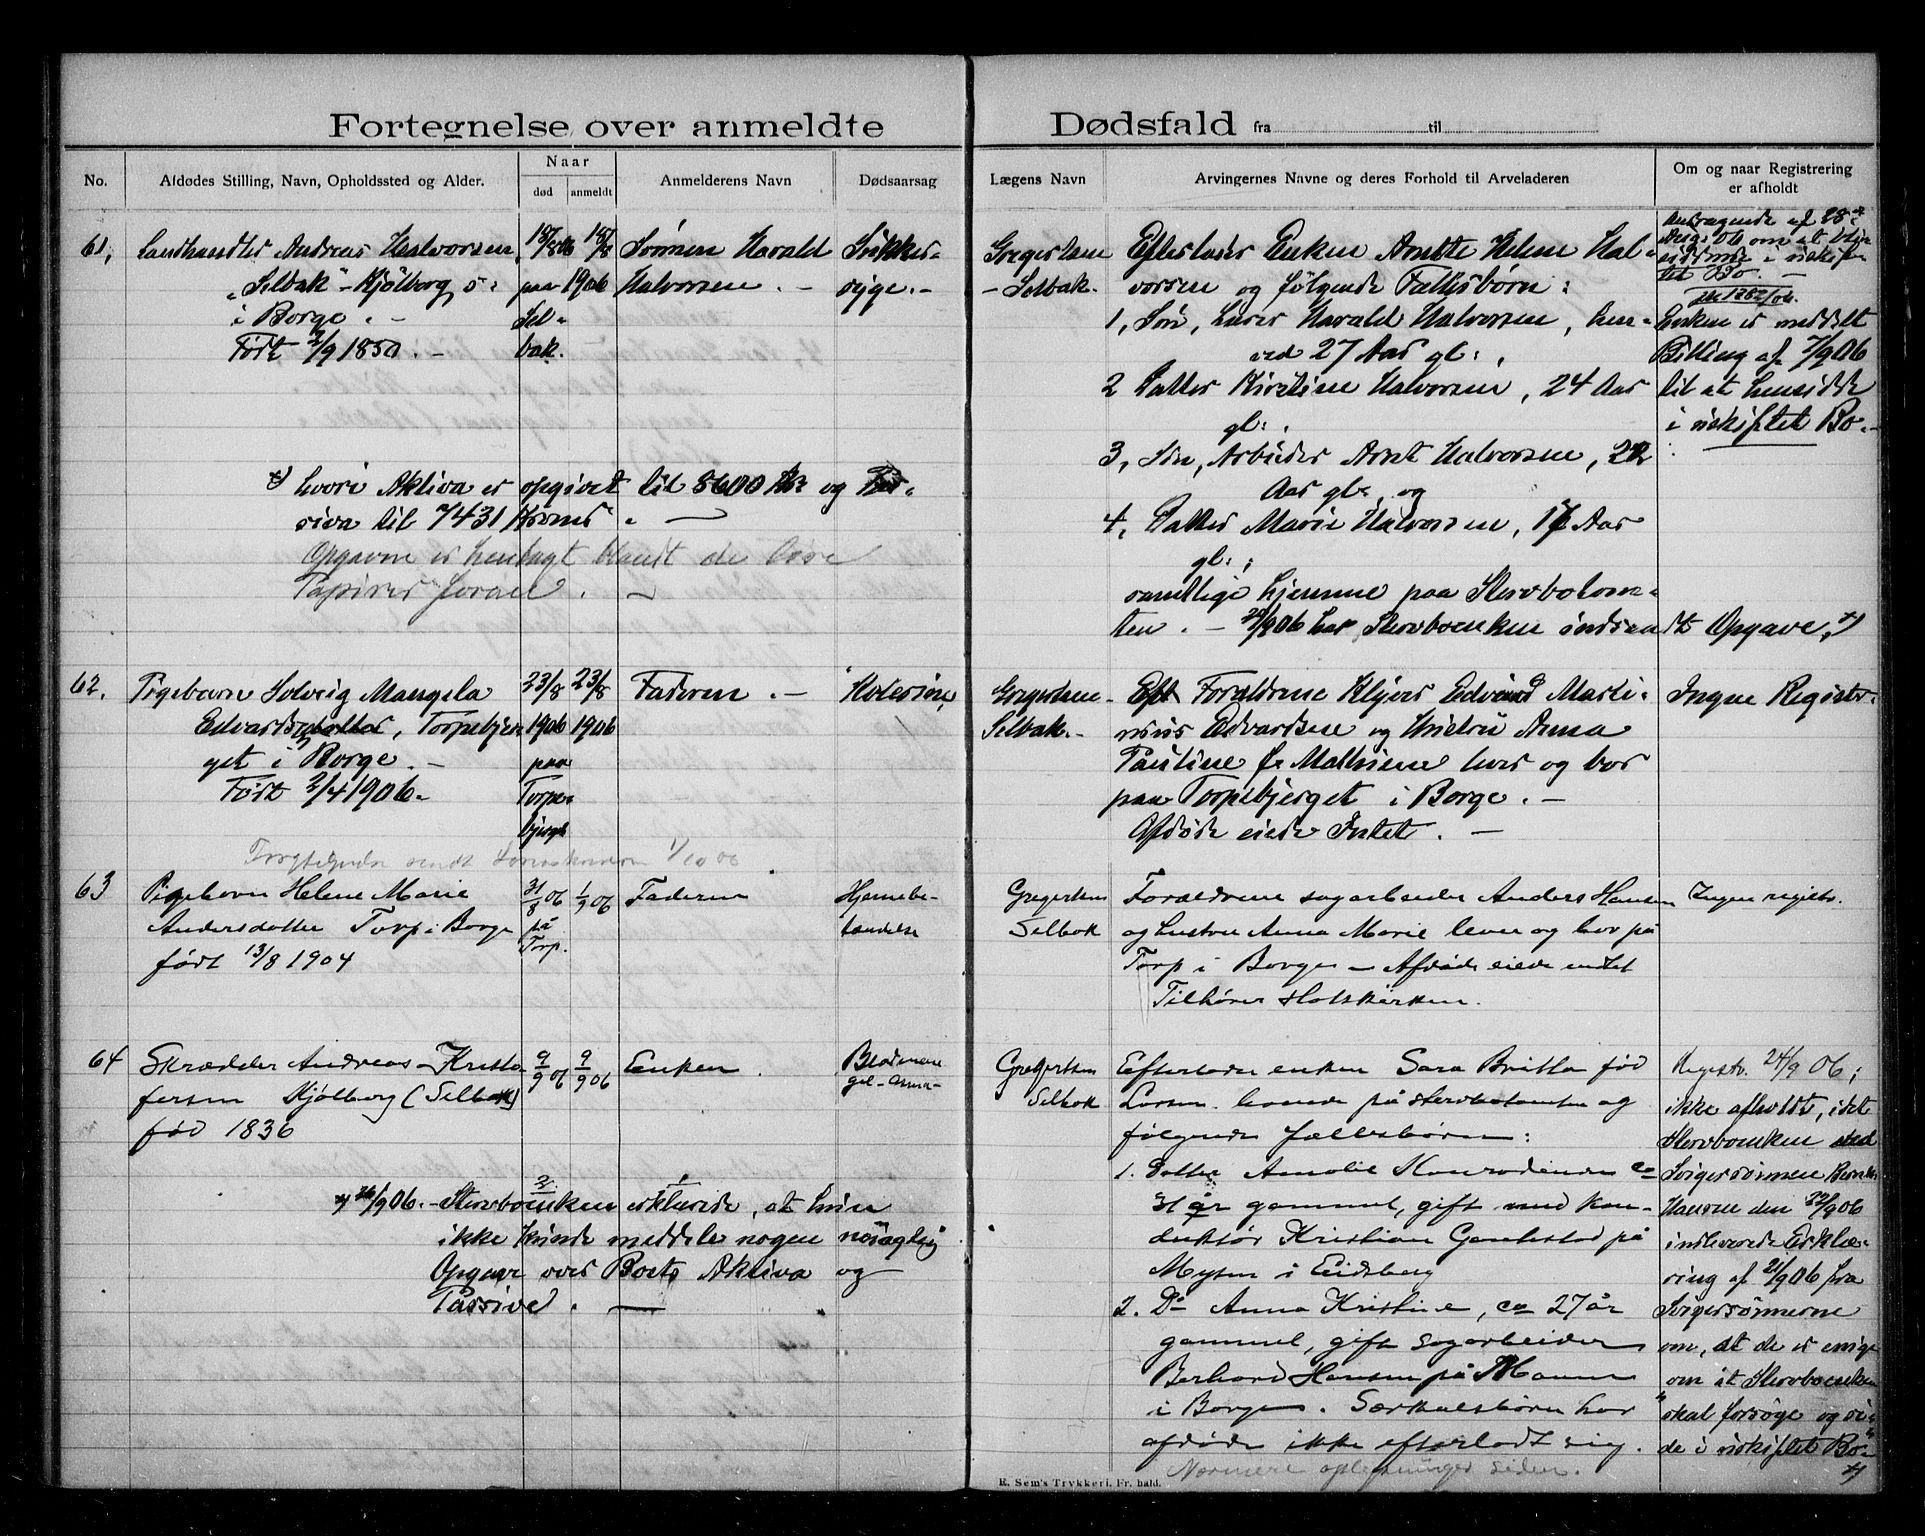 Fortegnelse over anmeldte
Dødsfald fra til
No.
Afdødes Stilling, Navn, Opholdssted og Alder.
Naar
død
anmeldt
Anmelderens Navn
Dødsaarsag
Lægens Navn
Arvingernes Navne og deres Forhold til Arveladeren
Om og naar Registrering
er afholdt
61,
Landhandler Andreas Halvorsen,
"Selbak" - Kjølberg
i Borge. -
Født 2/9 1850. -
paa
Sel=
bak.
1906
Sønnen Harald
Halvorsen. -
Sukker=
syge. -
Gregertsen
- Selbak.
Efterlader Enken Anette Helene Hal=
vorsen og følgende Fællesbørn:
1, Søn, Lars Harald Halvorsen,
ved 27 Aar gl:,
2 Datter Kirstine Halvorsen, 24 Aar
gl:,
3, Søn, Arbeider Arnt Halvorsen, 22
Aar gl:, og
4, Datter Marie Halvorsen, 17 Aar
gl:,
samtlige hjemme paa Stervbotom=
ten. - 22/9 06 har Stervboenken indsendt Opgave, *)
om at
1262/06.
Enken er meddelt
Billing af 7/9 06
til at hensidde
i uskiftet Bo. -
*) hvori Aktiva er opgivet til 8600 Kr og Pas=
siva til 7431 Kroner. -
Opgaven er henlagt blandt de løse
Papirer foran. -
62.
Pigebarn Solveig Mangela
Edvardsdatter, Torpebjer
get i Borge. -
Født 2/4 1906. -
23/8
1906
paa
Torpe=
bjerget
23/8
1906
Faderen. -
Gregertsen
Selbak. -
Forældrene Edvard Marti=
nius Edvardsen og Hustru Anna
Pauline f. Mathisen lever og bor
paa Torpebjerget i Borge. -
Afdøde eiede Intet. -
Ingen Register=
1/10 06
63
Pigebarn Helene Marie
Andersdatter Torp i Borge
født 13/8 1904
31/8 06
på
Torp.
1/9 06
Faderen
Hjernebe-
tændelse
Gregertsen
Selbak
Forældrene sagarbeider Anders Hansen
og hustru Anna Marie lever og bor på
Torp i Borge - Afdøde eiede intet
Tilhører Statskirken.
Ingen registr.
64
Skrædder Andreas Kristo-
fersen Kjølberg (Selbak)
fød 1836
9/9 06
9/9 06
Enken.
Gregertsen
Selbak
Efterlader enken Sara Britha fød
Larsen boende på stervbotomten og
følgende fællesbørn:
1. Datter Amalie ca
31 år gammel, gift med kon-
duktør Kristian på
Mysen i Eidsberg
2. Do Anna Kristine, ca 27 år
gammel, gift sagarbeider
Berhard Hansen på Moum
i Borge. Særkulsbørn har
afdøde ikke efterladt sig.
Nærmere oplysninger siden.
Registr. 24/9 06;
ikke afholdt, idet
Stervboenken ved
Svigersønnen Bernhar
Hansen den 22/9 06
indleverede Erklæ=
ring af 21/9 06 fra
Svigersønnerne
om, at de er enige
om at Stervboenken
"skal forsøge og sid=
de i uskiftet Bo"
*)
*) 26/9 06. - Stervboenken erklærede, at hun
ikke kunde meddele nogen nøiagtig
Opgave over Boets Aktiva og
Passiva. -
E. Sem's Trykkeri, Fr.hald.